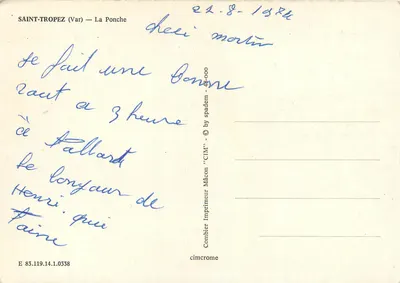 SAINT-TROPEZ (Var) — La Ponche
22-8-1974
cheri martin
je fait une bonne
raut a 3 heure
à Pallard
le bonjour de
Henri. qui
t'aime
Combier Imprimeur Mâcon "CIM" - © by spadem -
cimcrome
E 83.119.14.1.0338